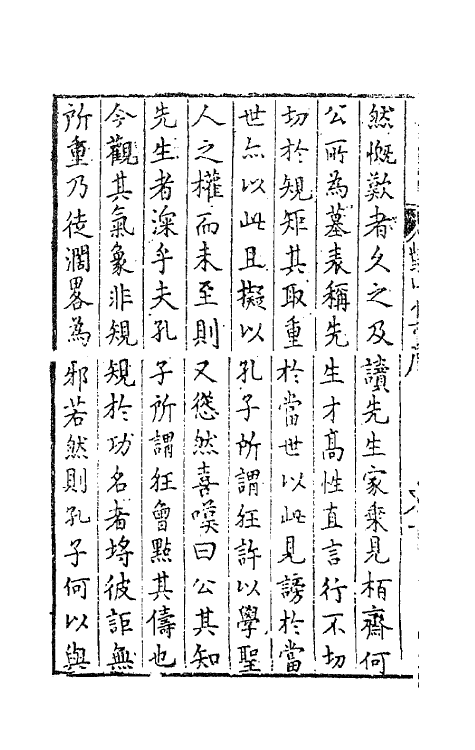 然慨歎者久之及讀先生家乘見栢齋何
公所為墓表稱先生才高性直言行不切
切於規矩其取重於當世以此見謗於當
世亦以此且擬以孔子所謂狂許以學聖
人之權而未至則又愾然喜嘆曰公其知
先生者深乎夫孔子所謂狂曾點其儔也
今觀其氣象非規規於功名者埓彼詎無
所重乃徒濶畧為邪若然則孔子何以與